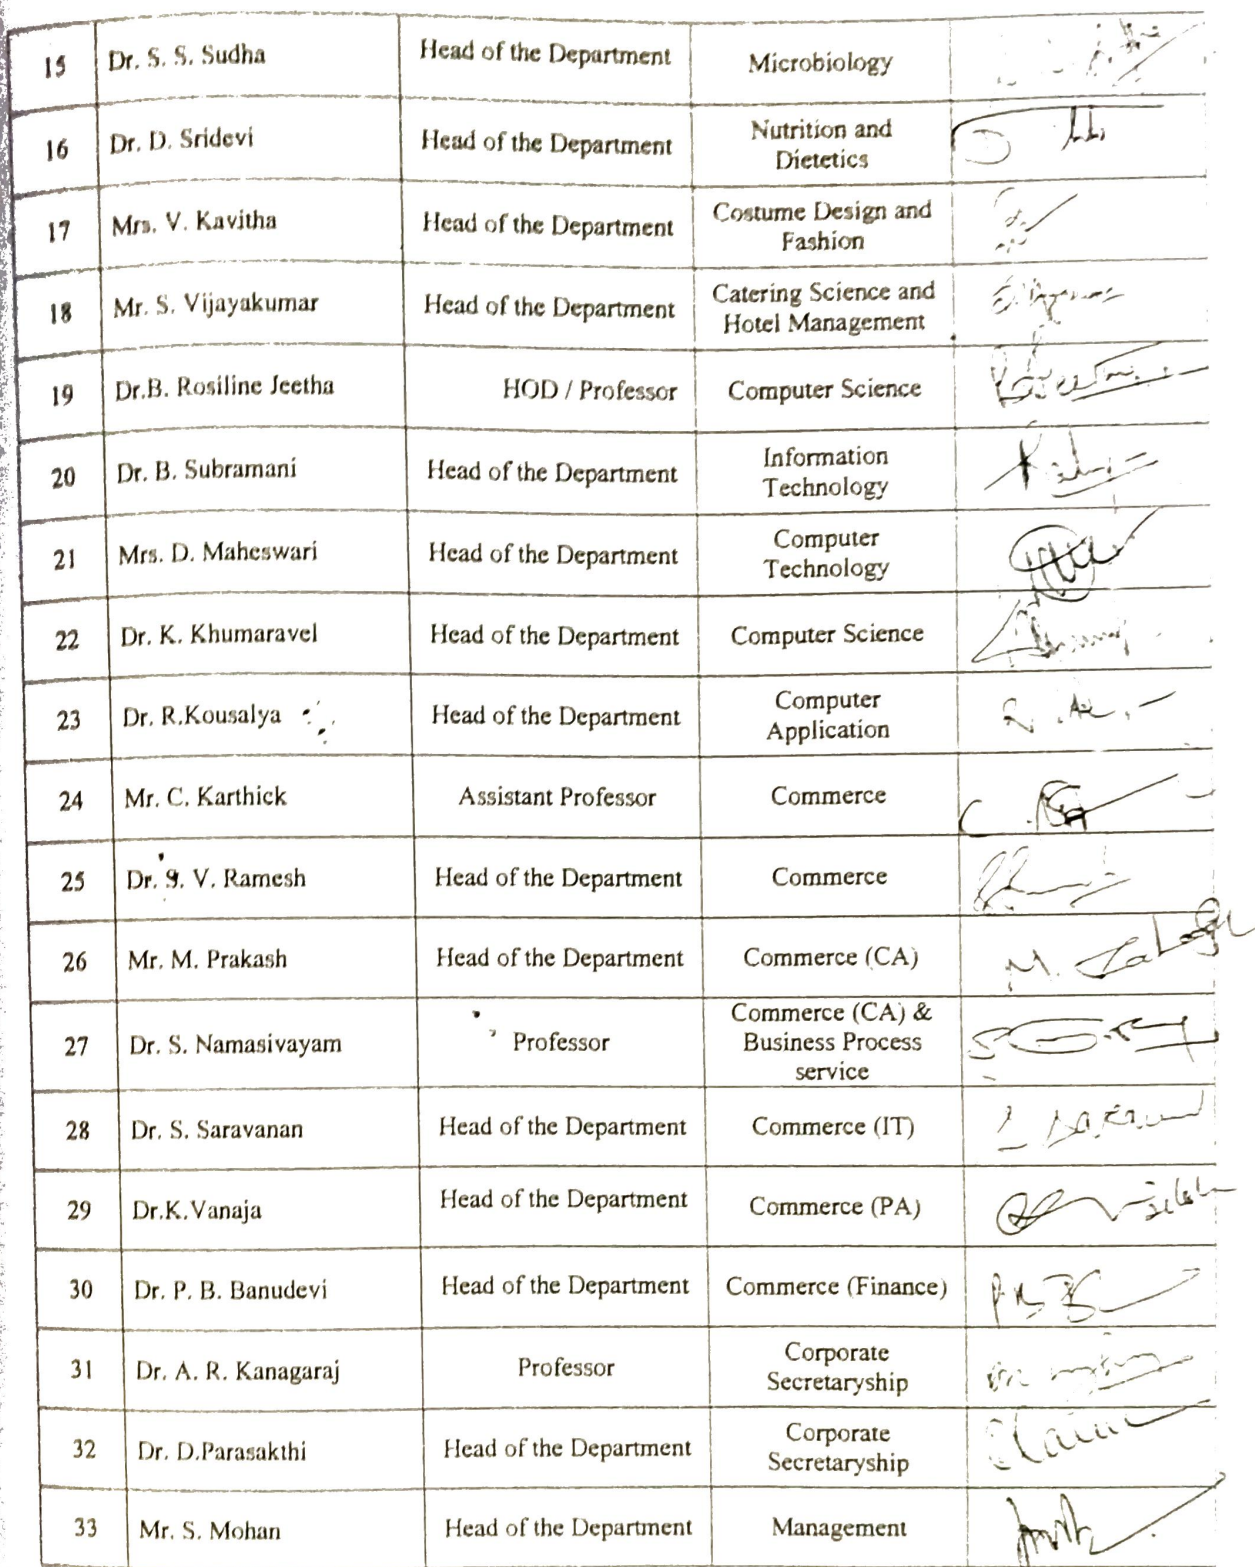 15 Dr. S. S. Sudha Head of the Department Microbiology
16 Dr. D. Sridevi Head of the Department Nutrition and
Dietetics
17 Mrs. V. Kavitha Head of the Department Costume Design and
Fashion
18 Mr. S. Vijayakumar Head of the Department Catering Science and
Hotel Management
19 Dr.B. Rosiline Jeetha HOD / Professor Computer Science
20 Dr. B. Subramani Head of the Department Information
Technology
21 Mrs. D. Maheswari Head of the Department Computer
Technology
22 Dr. K. Khumaravel Head of the Department Computer Science
23 Dr. R.Kousalya Head of the Department Computer
Application
24 Mr. C. Karthick Assistant Professor Commerce
25 Dr. V. Ramesh Head of the Department Commerce
26 Mr. M. Prakash Head of the Department Commerce (CA)
27 Dr. S. Namasivayam Professor Commerce (CA) &
Business Process
service
28 Dr. S. Saravanan Head of the Department Commerce (IT)
29 Dr.K.Vanaja Head of the Department Commerce (PA)
30 Dr. P. B. Banudevi Head of the Department Commerce (Finance)
31 Dr. A. R. Kanagaraj Professor Corporate
Secretaryship
32 Dr. D.Parasakthi Head of the Department Corporate
Secretaryship
33 Mr. S. Mohan Head of the Department Management